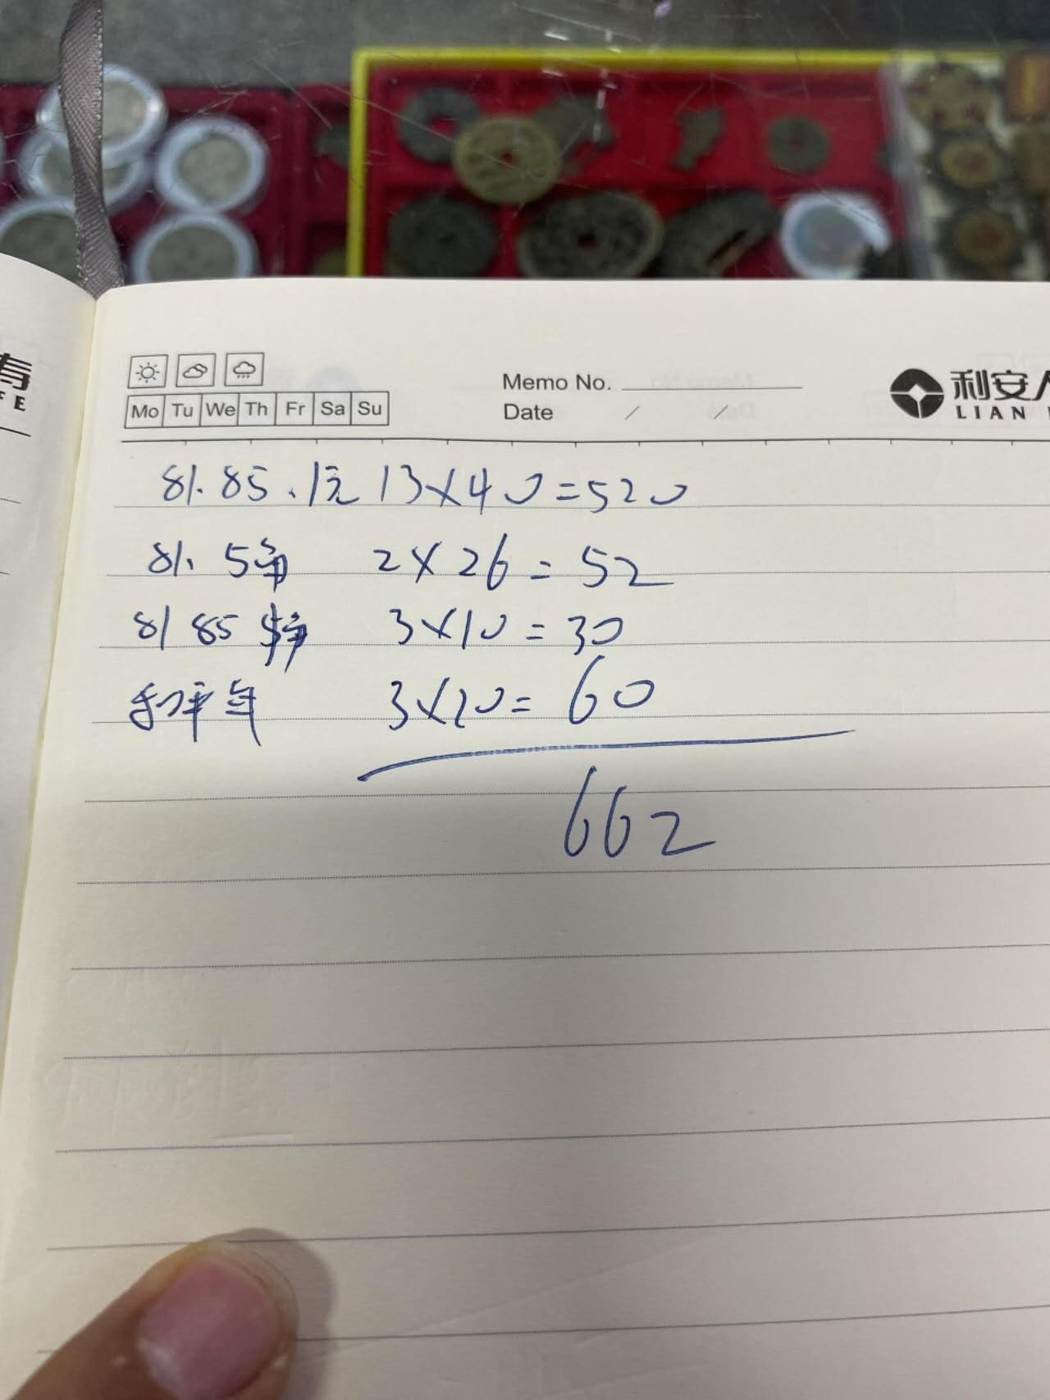 寿
FE
Mo Tu We Th Fr Sa Su
Memo No.
Date / /
利安人
LIAN
81.85.1元 13×40=520
81. 5角 2×26=52
81 85 3×10=30
和平年 3×20=60
662